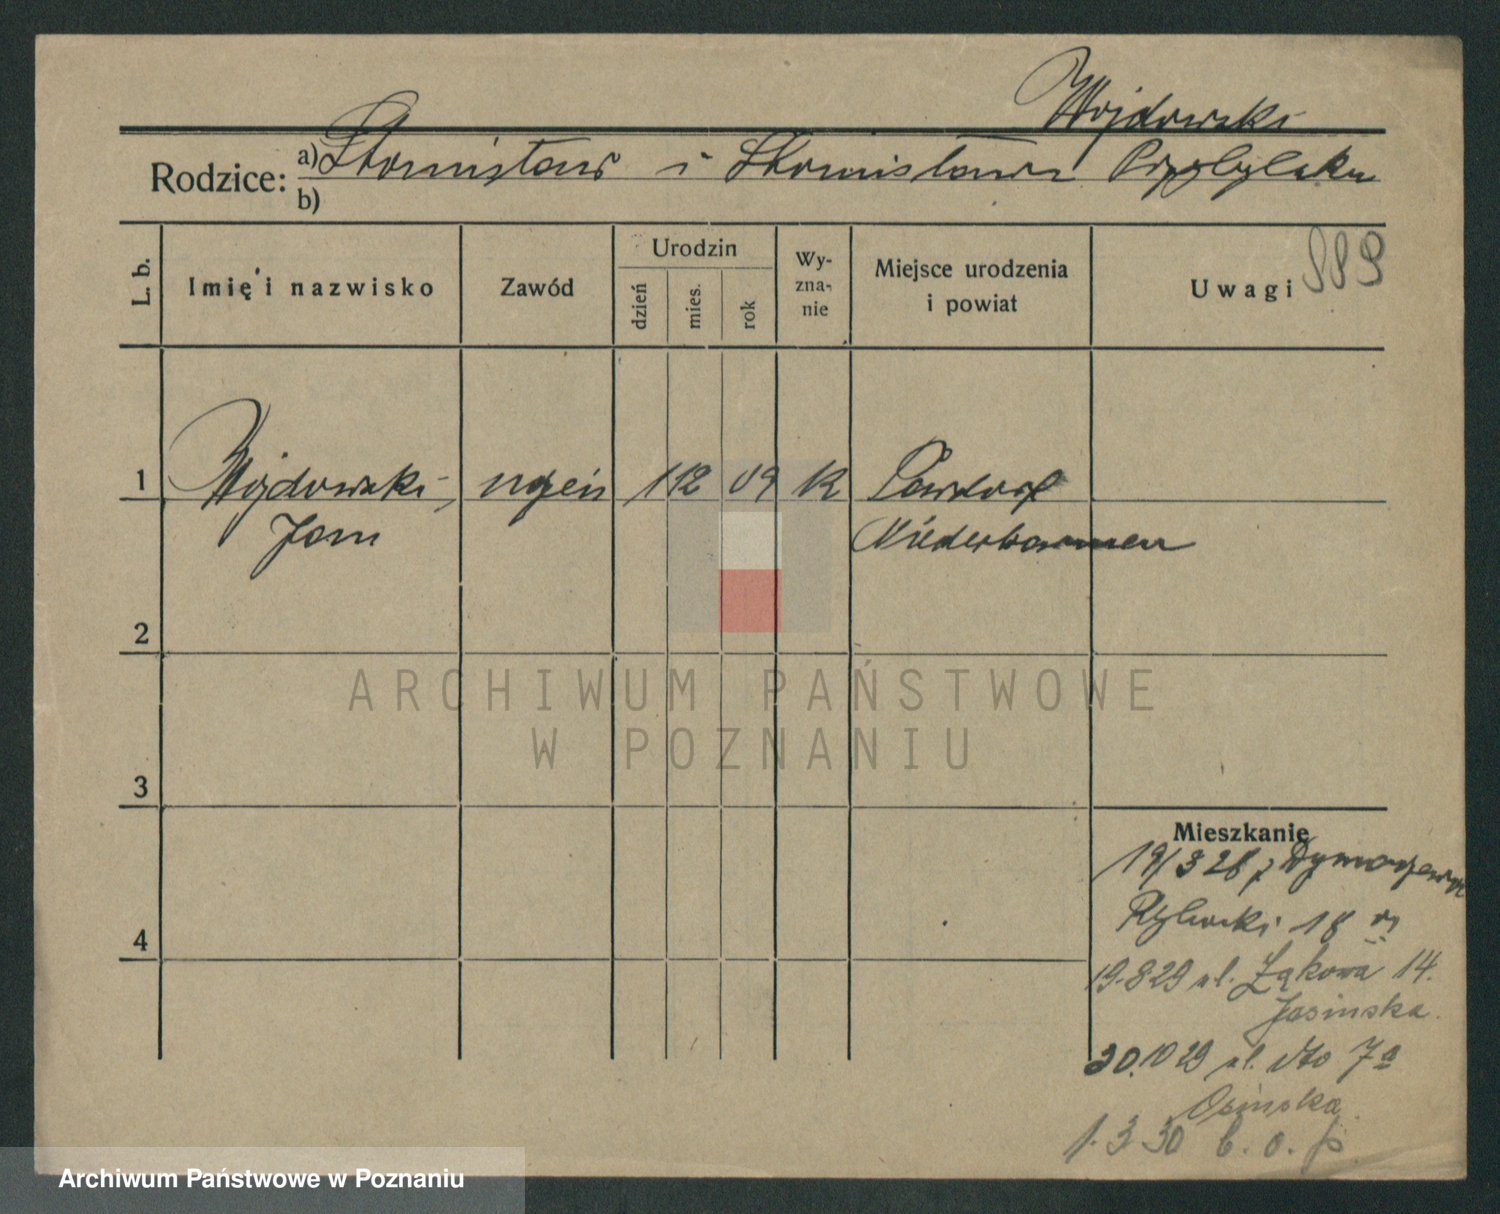 Wojdowski
Rodzice: a) Stanisław i Stanisława Przybylska
b)
L. b.
Imię i nazwisko
Zawód
Urodzin
dzień
mies.
rok
Wy-
zna-
nie
Miejsce urodzenia
i powiat
Uwagi
889
1
Wojdowski
uczeń
1 12 09
K
Jan
Niederbarmen
2
3
4
Mieszkanie
19/3 28 z
18
19.8 29 ul. Łąkowa 14.
Jasinska
30.10 29 ul. dto 7a
Osinska
1.3 30 b. o. p.
ARCHIWUM PAŃSTWOWE
W POZNANIU
Archiwum Państwowe w Poznaniu